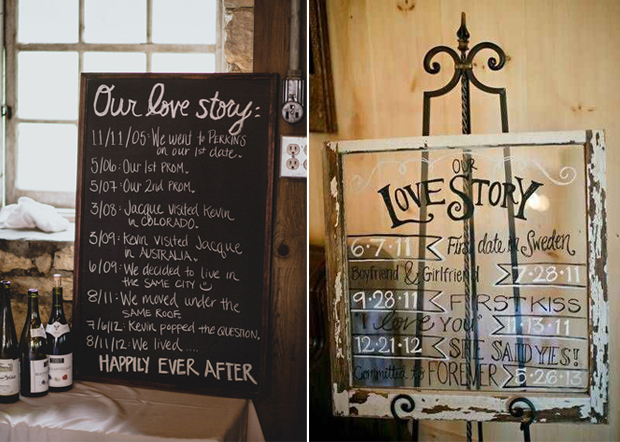 Our love story:
11/11/05: We went to PERKINS
on our 1st date.
5/06: Our 1st PROM.
5/07: Our 2nd PROM.
3/08: Jacque visited Kevin
in COLORADO.
3/09: Kevin visited Jacque
in AUSTRALIA.
6/09: We decided to live in
the SAME CITY
8/11: We moved under the
SAME ROOF.
7/6/12: Kevin popped the QUESTION.
8/11/12: We lived ....
HAPPILY EVER AFTER
OUR
LOVE STORY
6·7·11 First date in Sweden
Boyfriend & Girlfriend 7·28·11
9·28·11 FIRST KISS
"I love You" 11·13·11
12·21·12 SHE SAID YES!!
Committed to FOREVER 5·26·13